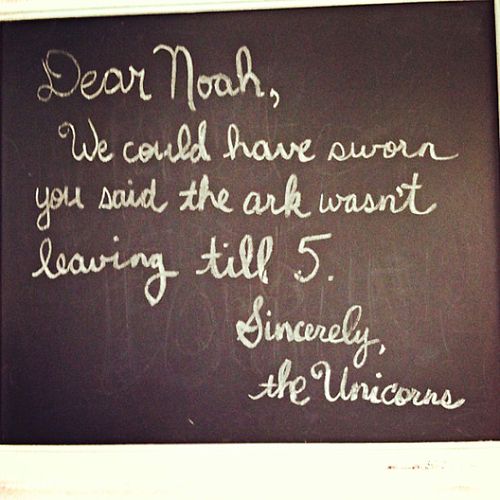 Dear Noah,
We could have sworn
you said the ark wasn't
leaving till 5.
Sincerely,
the Unicorns